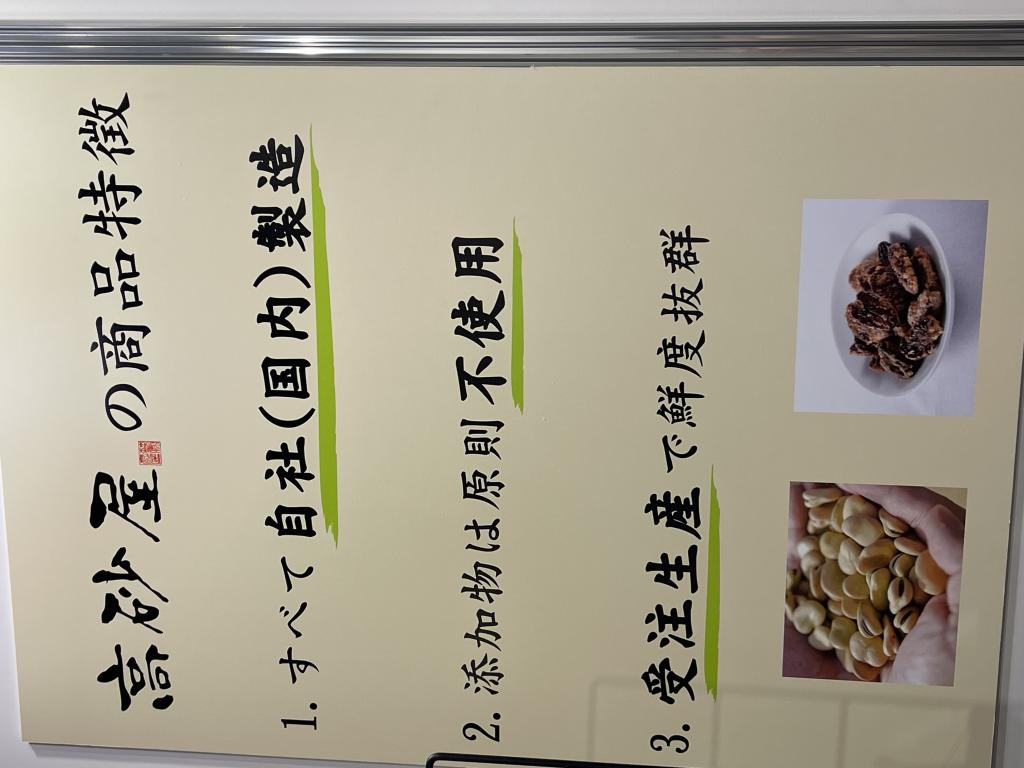 高砂屋の商品特徴
1. すべて自社(国内)製造
2. 添加物は原則不使用
3. 受注生産で鮮度抜群